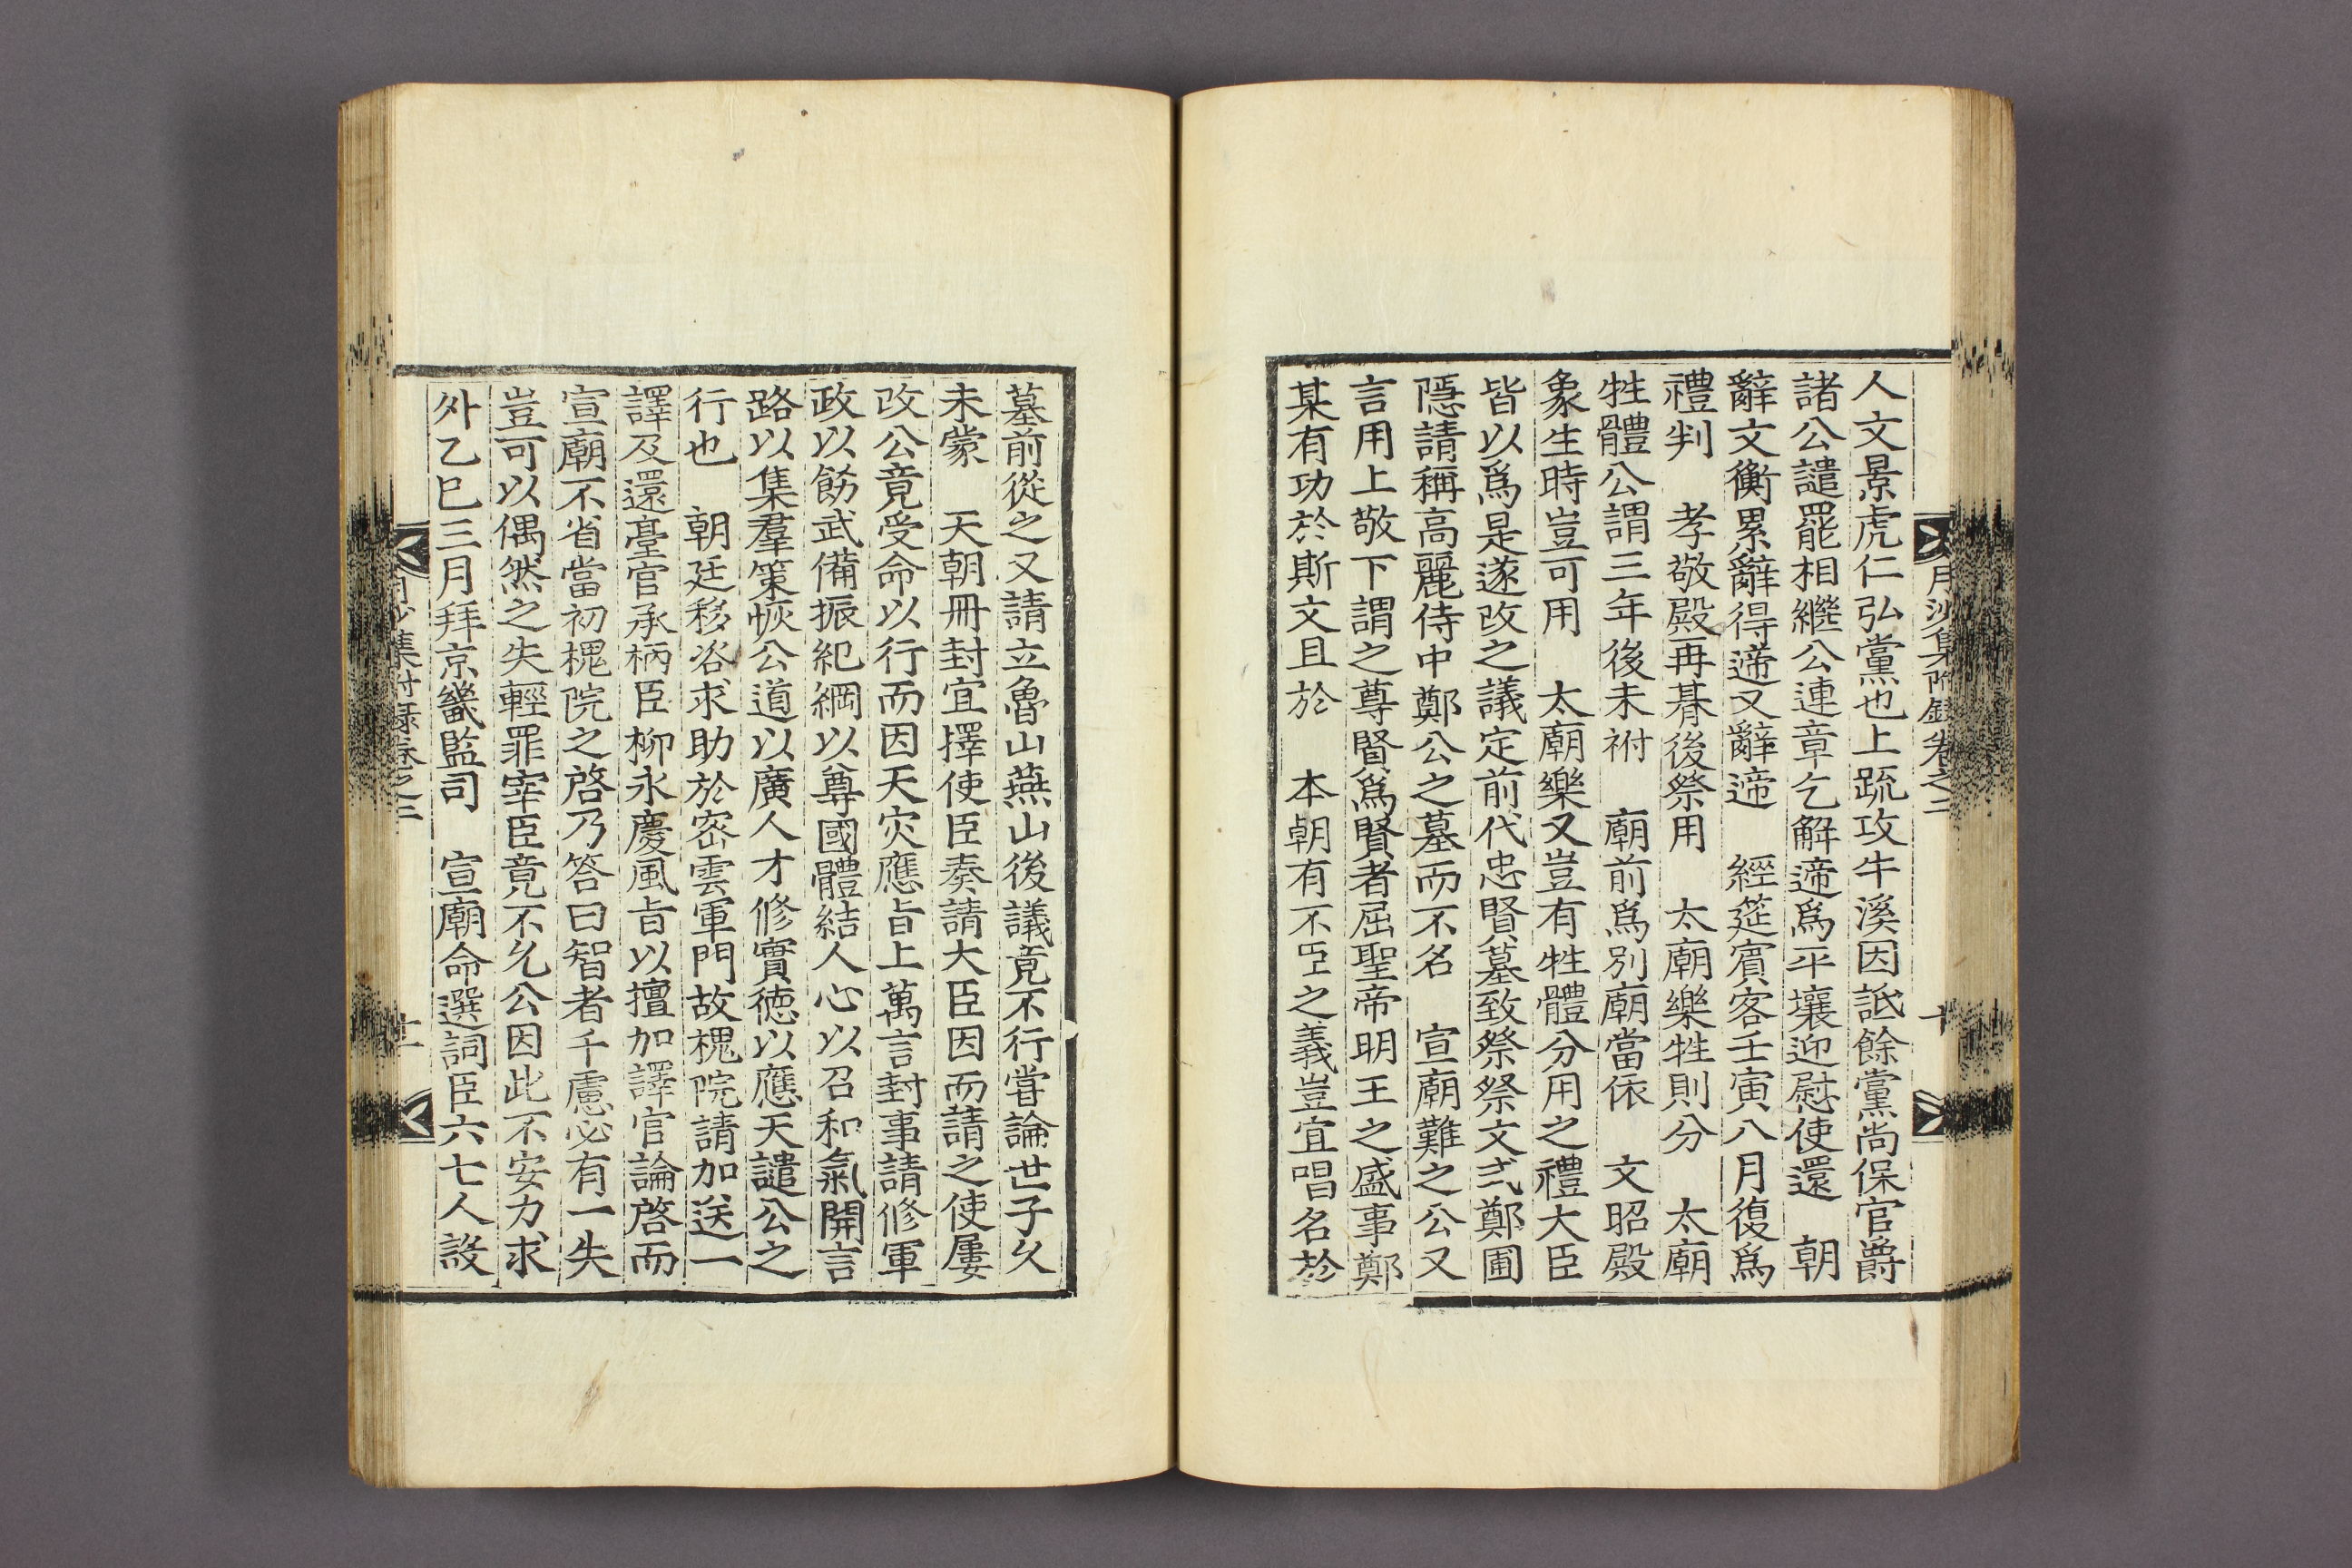 月沙集附錄卷之二
十
人文景虎仁弘黨也上疏攻牛溪因詆餘黨尚保官爵
諸公譴罷相繼公連章乞解遞爲平壤迎慰使還　朝
辭文衡累辭得遞又辭遞　經筵賓客壬寅八月復爲
禮判　孝敬殿再朞後祭用　太廟樂牲則分　太廟
牲體公謂三年後未祔　廟前爲別廟當依　文昭殿
象生時豈可用　太廟樂又豈有牲體分用之禮大臣
皆以爲是遂改之議定前代忠賢墓致祭祭文式鄭圃
隱請稱高麗侍中鄭公之墓而不名　宣廟難之公又
言用上敬下謂之尊賢爲賢者屈聖帝明王之盛事鄭
某有功於斯文且於　本朝有不臣之義豈宜唱名於
墓前從之又請立魯山燕山後議竟不行嘗論世子久
未蒙　天朝冊封宜擇使臣奏請大臣因而請之使屢
改公竟受命以行而因天灾應旨上萬言封事請修軍
政以飭武備振紀綱以尊國體結人心以召和氣開言
路以集羣策恢公道以廣人才修實德以應天譴公之
行也　朝廷移咨求助於密雲軍門故槐院請加送一
譯及還臺官承柄臣柳永慶風旨以擅加譯官論啓而
宣廟不省當初槐院之啓乃答曰智者千慮必有一失
豈可以偶然之失輕罪宰臣竟不允公因此不安力求
外乙巳三月拜京畿監司　宣廟命選詞臣六七人設
月沙集附錄卷之二